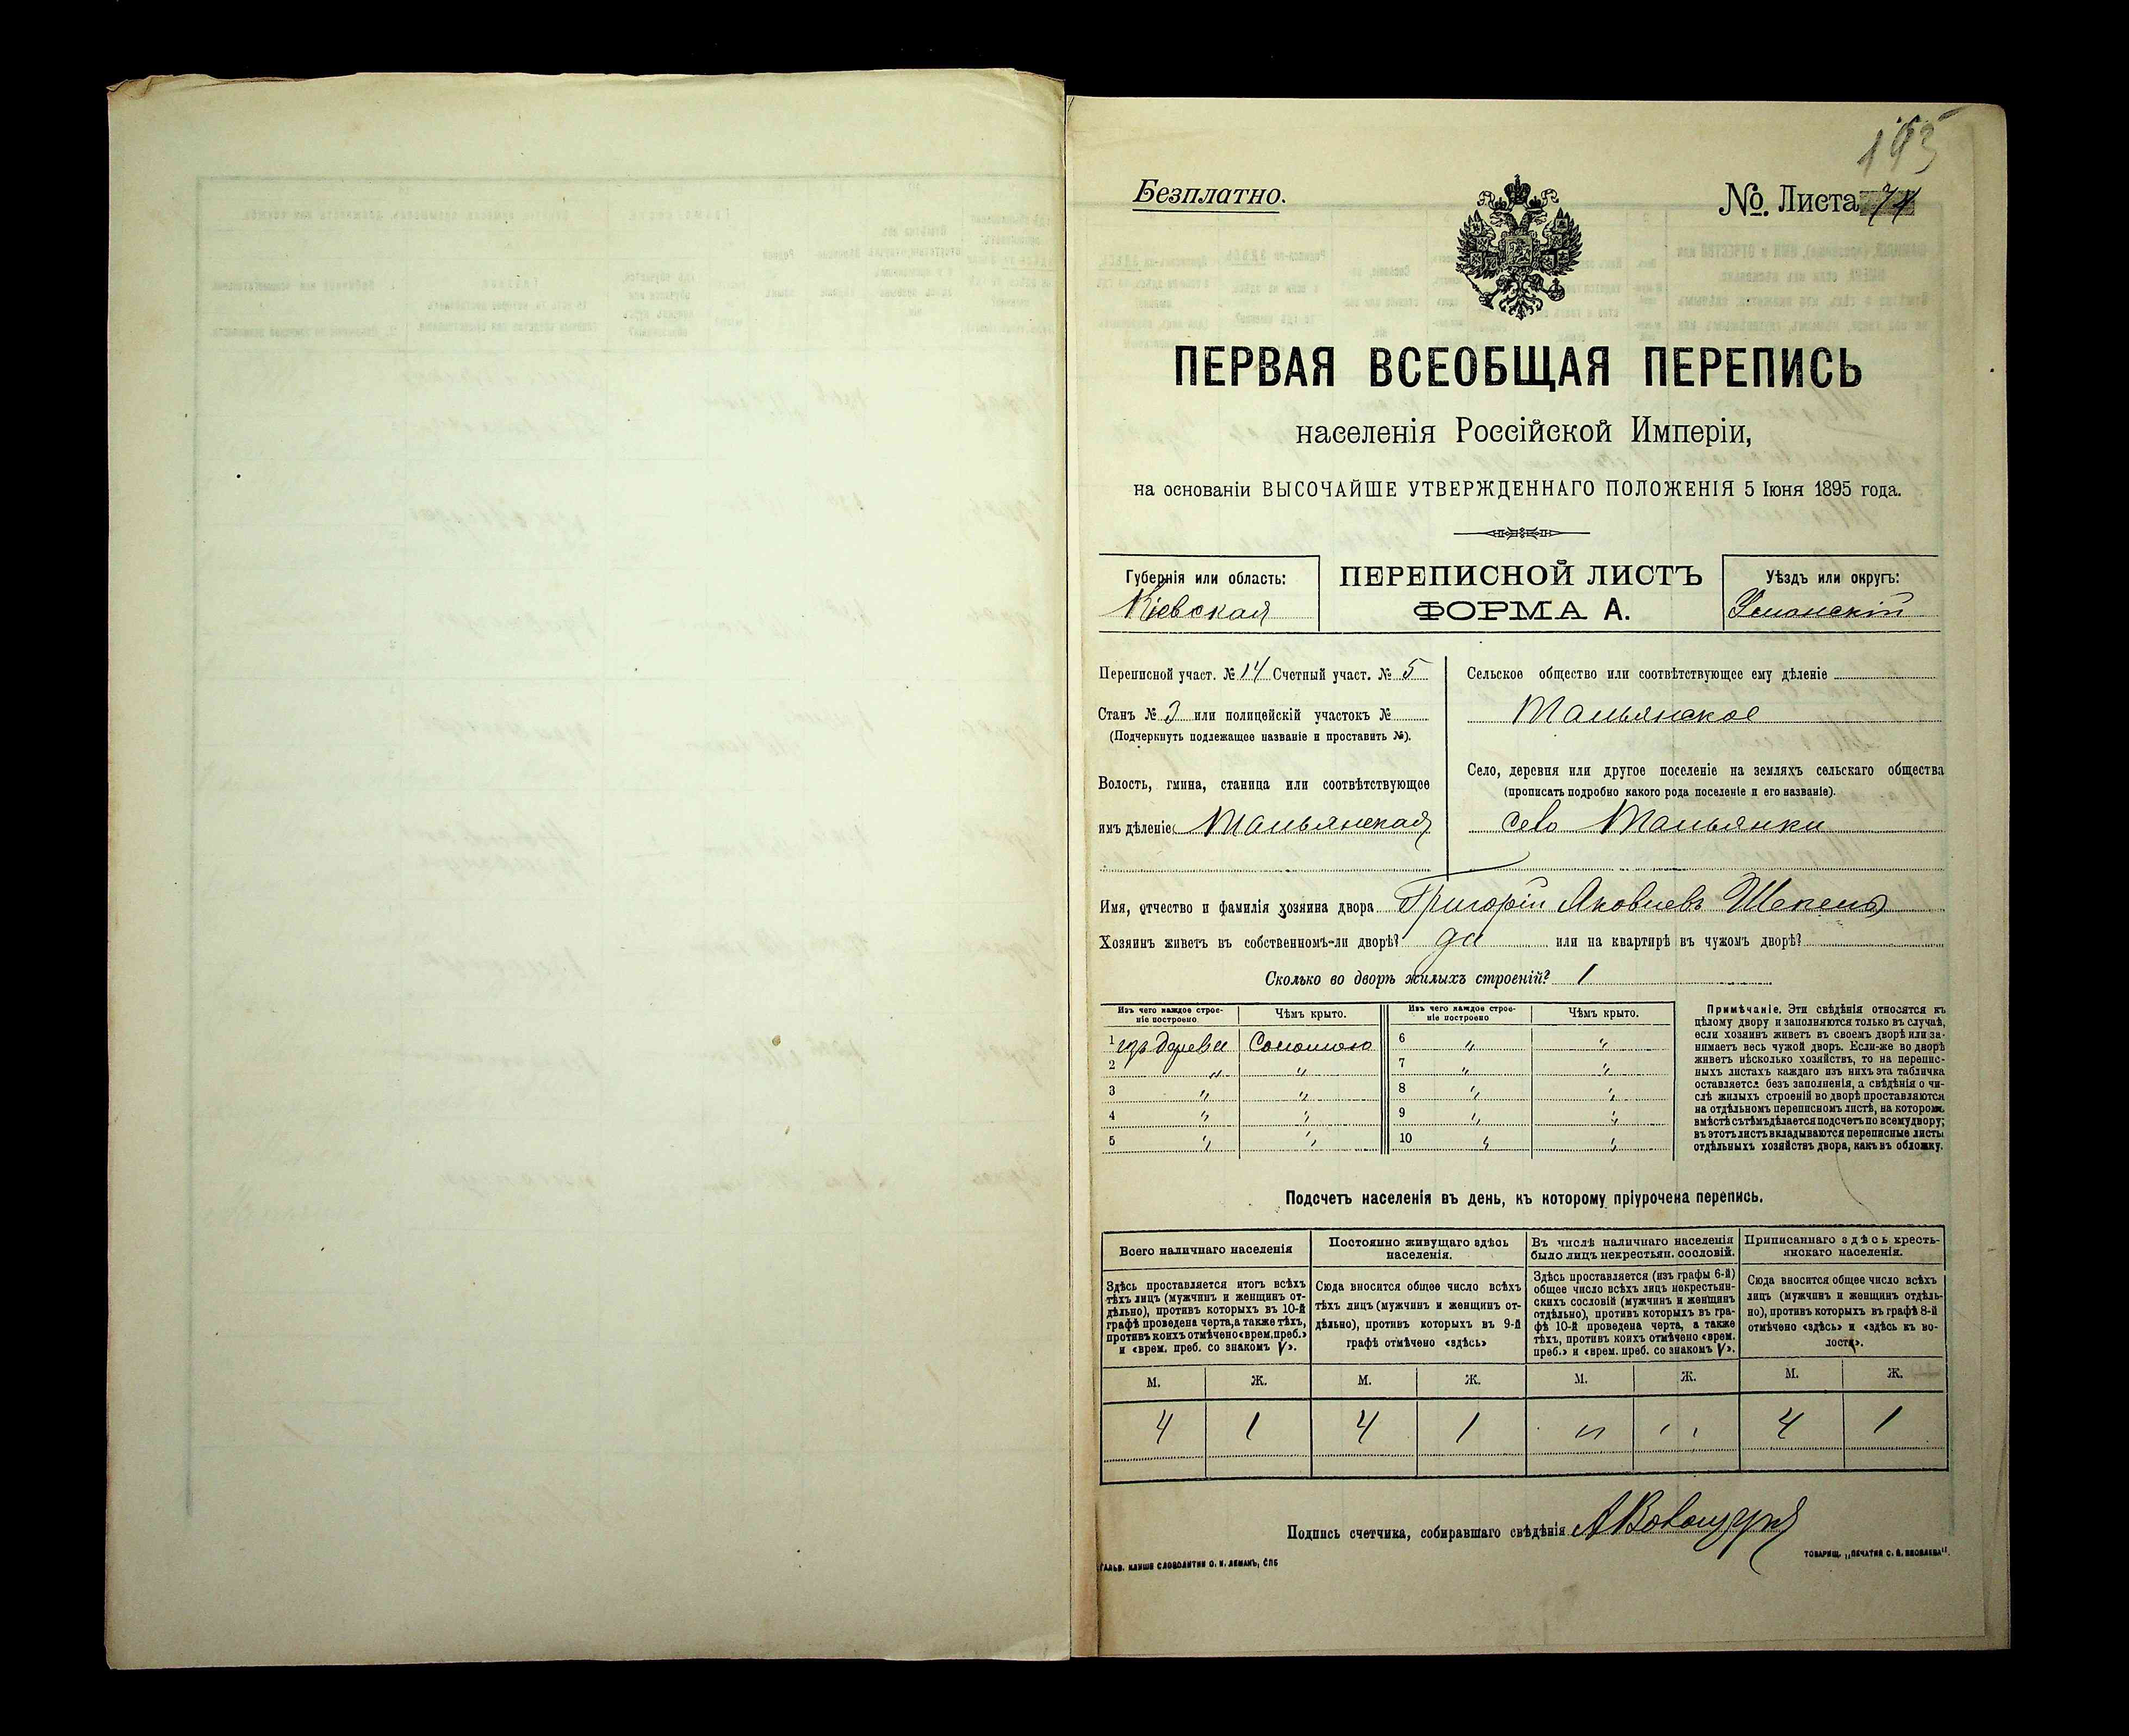 195
Безплатно.
№ Листа 74
ПЕРВАЯ ВСЕОБЩАЯ ПЕРЕПИСЬ
населенія Россійской Имперіи,
на основаніи ВЫСОЧАЙШЕ УТВЕРЖДЕННАГО ПОЛОЖЕНІЯ 5 Іюня 1895 года.
Губернія или область:
Кіевская
ПЕРЕПИСНОЙ ЛИСТЪ
ФОРМА А.
Уѣздъ или округъ:
Уманскій
Переписной участ. № 14 Счетный участ. № 5
Станъ № 3 или полицейскій участокъ №
(Подчеркнуть подлежащее названіе и проставить №).
Волость, гмина, станица или соотвѣтствующее
имъ дѣленіе Тальянская
Сельское общество или соотвѣтствующее ему дѣленіе
Тальянское
Село, деревня или другое поселеніе на земляхъ сельскаго общества
(прописать подробно какого рода поселеніе и его названіе).
село Тальянки
Имя, отчество и фамилія хозяина двора Григорій Яковлевъ
Хозяинъ живетъ въ собственномъ-ли дворѣ? да или на квартирѣ въ чужомъ дворѣ?
Сколько во дворѣ жилыхъ строеній? 1
Изъ чего каждое строе-
ніе построено
Чѣмъ крыто.
Изъ чего каждое строе-
ніе построено
Чѣмъ крыто.
1 изъ дерева Соломою 6 " "
2 " " 7 " "
3 " " 8 " "
4 " " 9 " "
5 " " 10 " "
Примѣчаніе. Эти свѣдѣнія относятся къ
цѣлому двору и заполняются только въ случаѣ,
если хозяинъ живетъ въ своемъ дворѣ или за-
нимаетъ весь чужой дворъ. Если-же во дворѣ
живетъ нѣсколько хозяйствъ, то на перепис-
ныхъ листахъ каждаго изъ нихъ эта табличка
оставляется безъ заполненія, а свѣдѣнія о чи-
слѣ жилыхъ строеній во дворѣ проставляются
на отдѣльномъ переписномъ листѣ, на которомъ
вмѣстѣ съ тѣмъ дѣлается подсчетъ по всему двору;
въ этотъ листъ вкладываются переписные листы
отдѣльныхъ хозяйствъ двора, какъ въ обложку.
Подсчетъ населенія въ день, къ которому пріурочена перепись.
Всего наличнаго населенія
Постоянно живущаго здѣсь
населенія.
Въ числѣ наличнаго населенія
было лицъ некрестьян. сословій.
Приписаннаго здѣсь кресть-
янскаго населенія.
Здѣсь проставляется итогъ всѣхъ
тѣхъ лицъ (мужчинъ и женщинъ от-
дѣльно), противъ которыхъ въ 10-й
графѣ проведена черта, а также тѣхъ,
противъ коихъ отмѣчено «врем. преб.»
и «врем. преб. со знакомъ V».
Сюда вносится общее число всѣхъ
тѣхъ лицъ (мужчинъ и женщинъ от-
дѣльно), противъ которыхъ въ 9-й
графѣ отмѣчено «здѣсь»
Здѣсь проставляется (изъ графы 6-й)
общее число всѣхъ лицъ некрестьян-
скихъ сословій (мужчинъ и женщинъ
отдѣльно), противъ которыхъ въ гра-
фѣ 10-й проведена черта, а также
тѣхъ, противъ коихъ отмѣчено «врем.
преб.» и «врем. преб. со знакомъ V».
Сюда вносится общее число всѣхъ
лицъ (мужчинъ и женщинъ отдѣль-
но), противъ которыхъ въ графѣ 8-й
отмѣчено «здѣсь» и «здѣсь къ во-
лости».
М. Ж. М. Ж. М. Ж. М. Ж.
4 1 4 1 " " 4 1
Подпись счетчика, собиравшаго свѣдѣнія
ГАЛЬВ. КЛИШЕ СЛОВОЛИТНИ О. И. ЛЕМАНЪ, СПБ
ТОВАРИЩ. „ПЕЧАТНЯ С. П. ЯКОВЛЕВА".